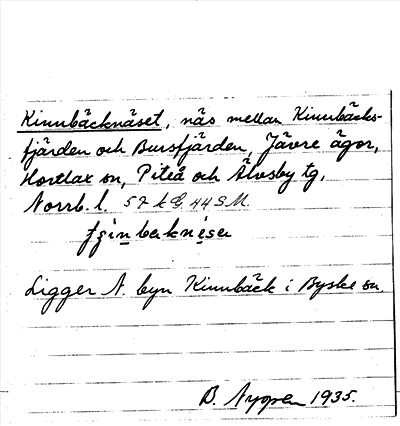 Kinnbäcknäset, näs mellan Kinnbäcks-
fjärden och Bursfjärden, Jävre ägor,
Hortlax sn, Piteå och Älvsby tg,
Norrb. l. 57 k G. 44 S M.
Ligger N. byn Kinnbäck i Byske sn.
B. Nygren 1935.